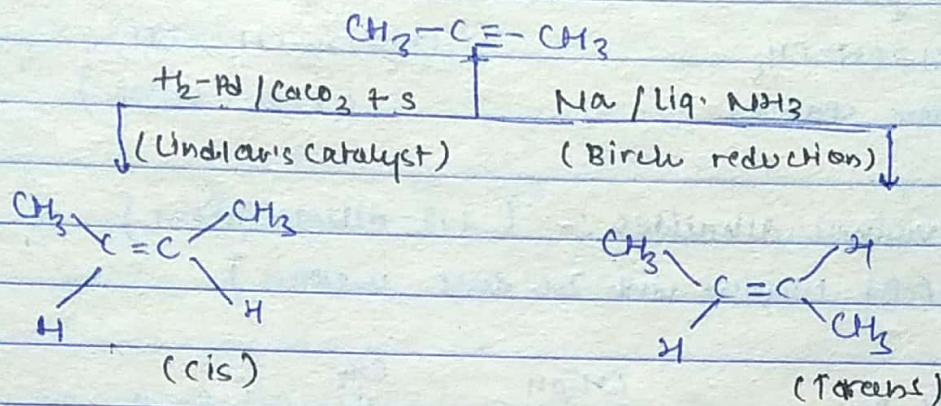 CH3-C≡-CH3
H2-Pd/CaCO3 + S
Na / Liq. NH3
(Lindlar's Catalyst)
(Birch reduction)
CH3 CH3
C=C
H H
(cis)
CH3 H
C=C
H CH3
(Trans)